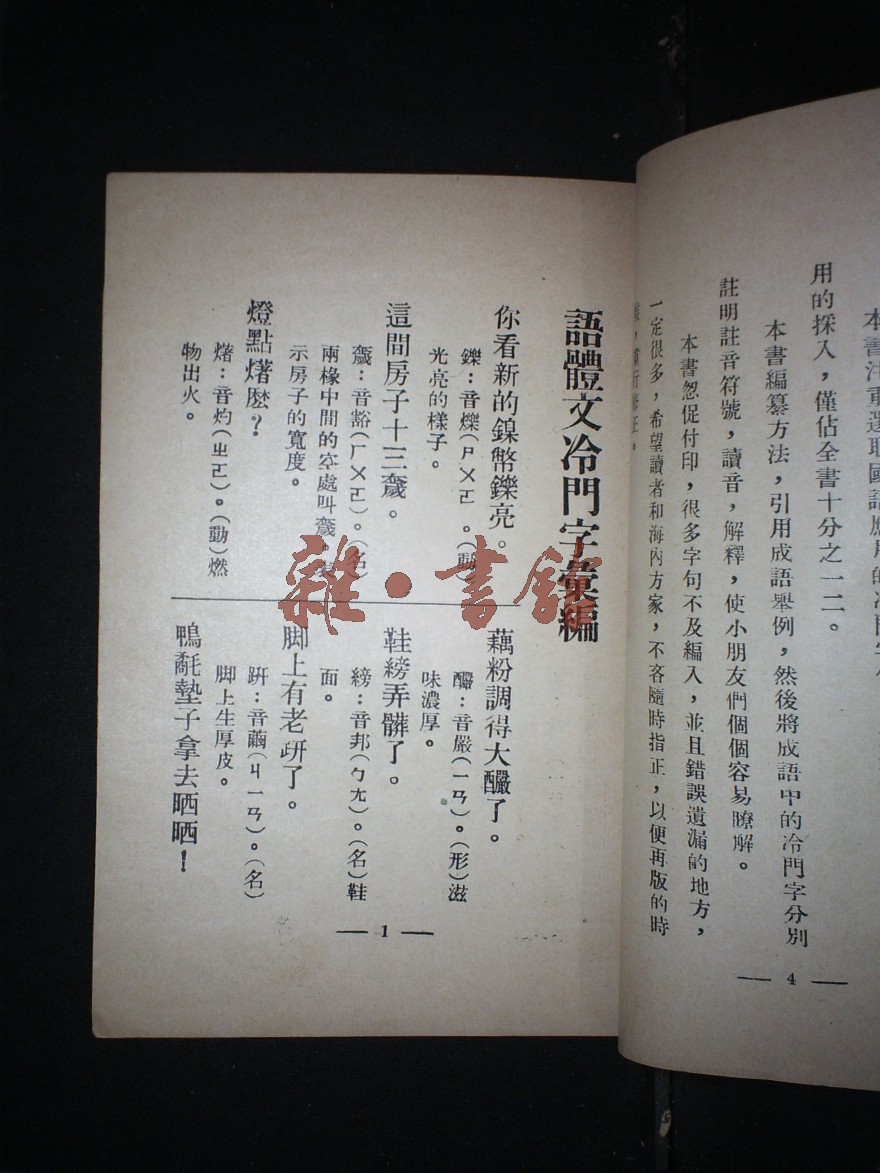 本書注重選取國語應用的冷門字
用的採入，僅佔全書十分之一二。
本書編纂方法，引用成語舉例，然後將成語中的冷門字分別
註明註音符號，讀音，解釋，使小朋友們個個容易瞭解。
本書忽促付印，很多字句不及編入，並且錯誤遺漏的地方，
一定很多，希望讀者和海內方家，不吝隨時指正，以便再版的時
— 4 —
語體文冷門字彙編
你看新的鎳幣鑠亮。
鑠：音爍（ㄕㄨㄛ。（動）
光亮的樣子。
這間房子十三
：音豁（ㄏㄨㄛ）。（名）
兩椽中間的空處叫
示房子的寬度。
燈點𤏸麽？
：音灼（ㄓㄛ）。（動）燃
物出火。
藕粉調得大釅了。
釅：音嚴（ㄧㄢ）。（形）滋
味濃厚。
鞋縍弄髒了。
縍：音邦（ㄅㄤ）。（名）鞋
面。
脚上有老趼了。
趼：音繭（ㄐㄧㄢ）。（名）
脚上生厚皮。
鴨氄墊子拿去晒晒！
— 1 —
雜·書館